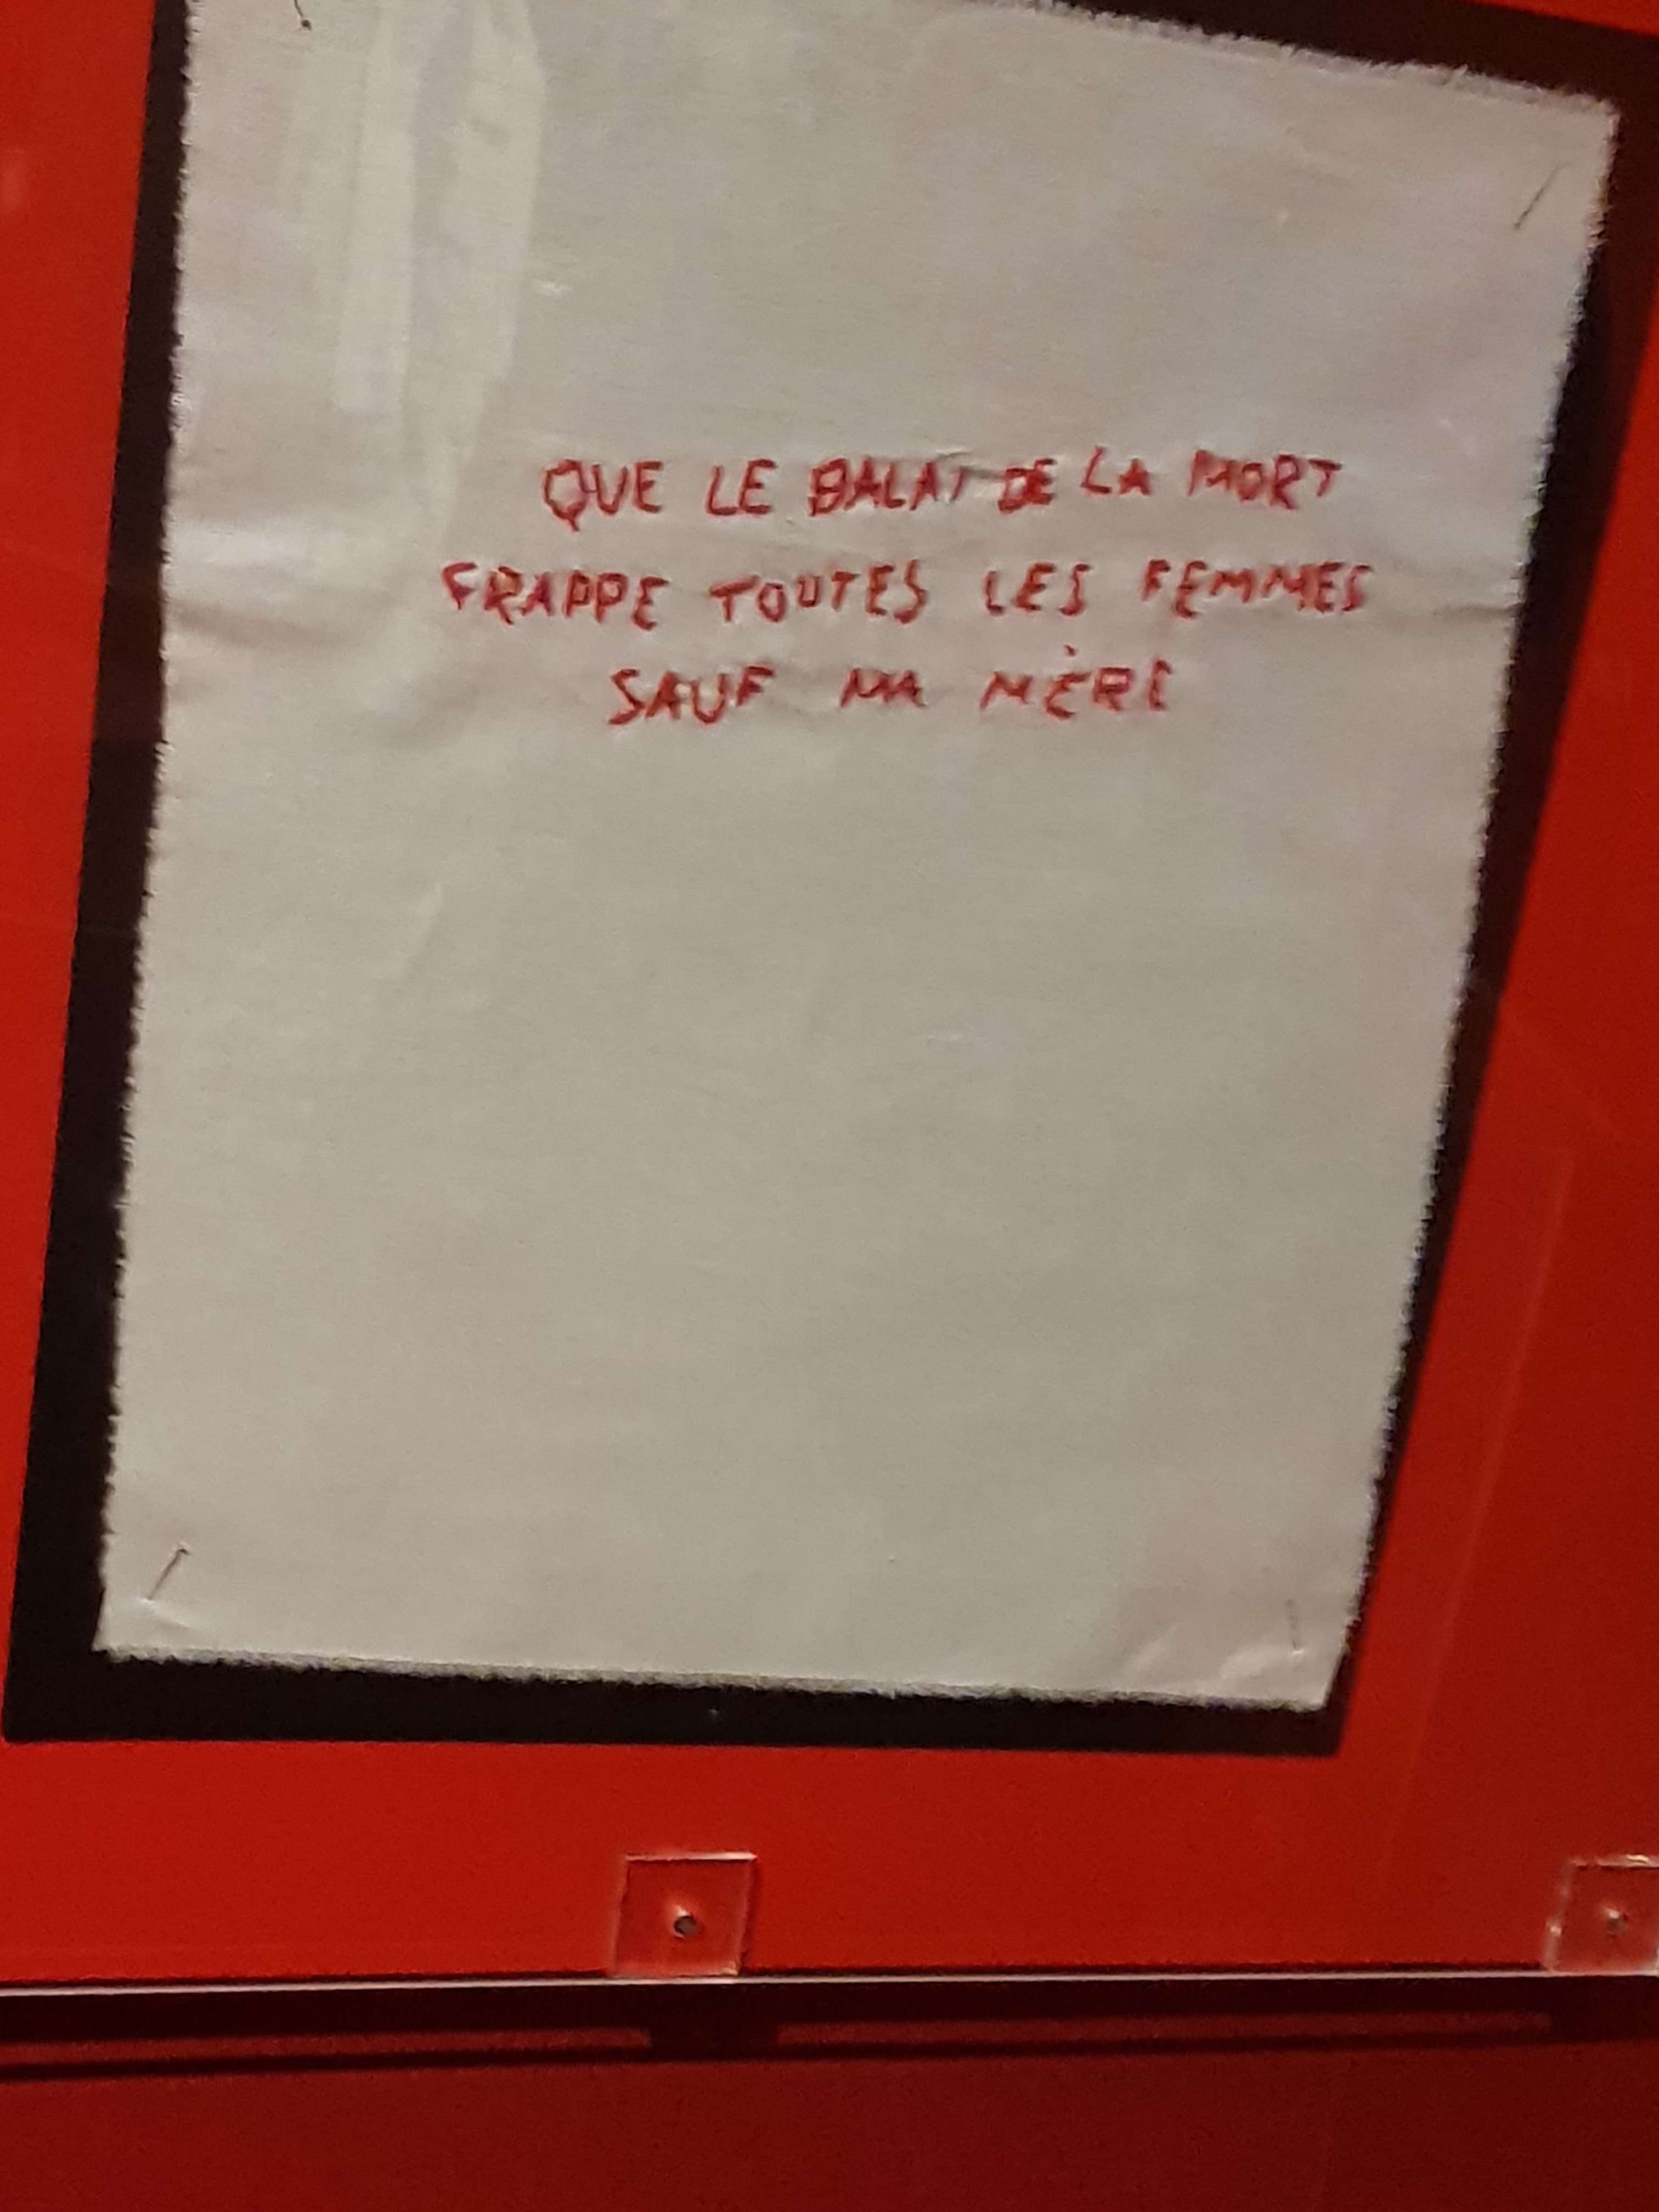 QUE LE BALAI DE LA MORT
FRAPPE TOUTES LES FEMMES
SAUF MA MÈRE